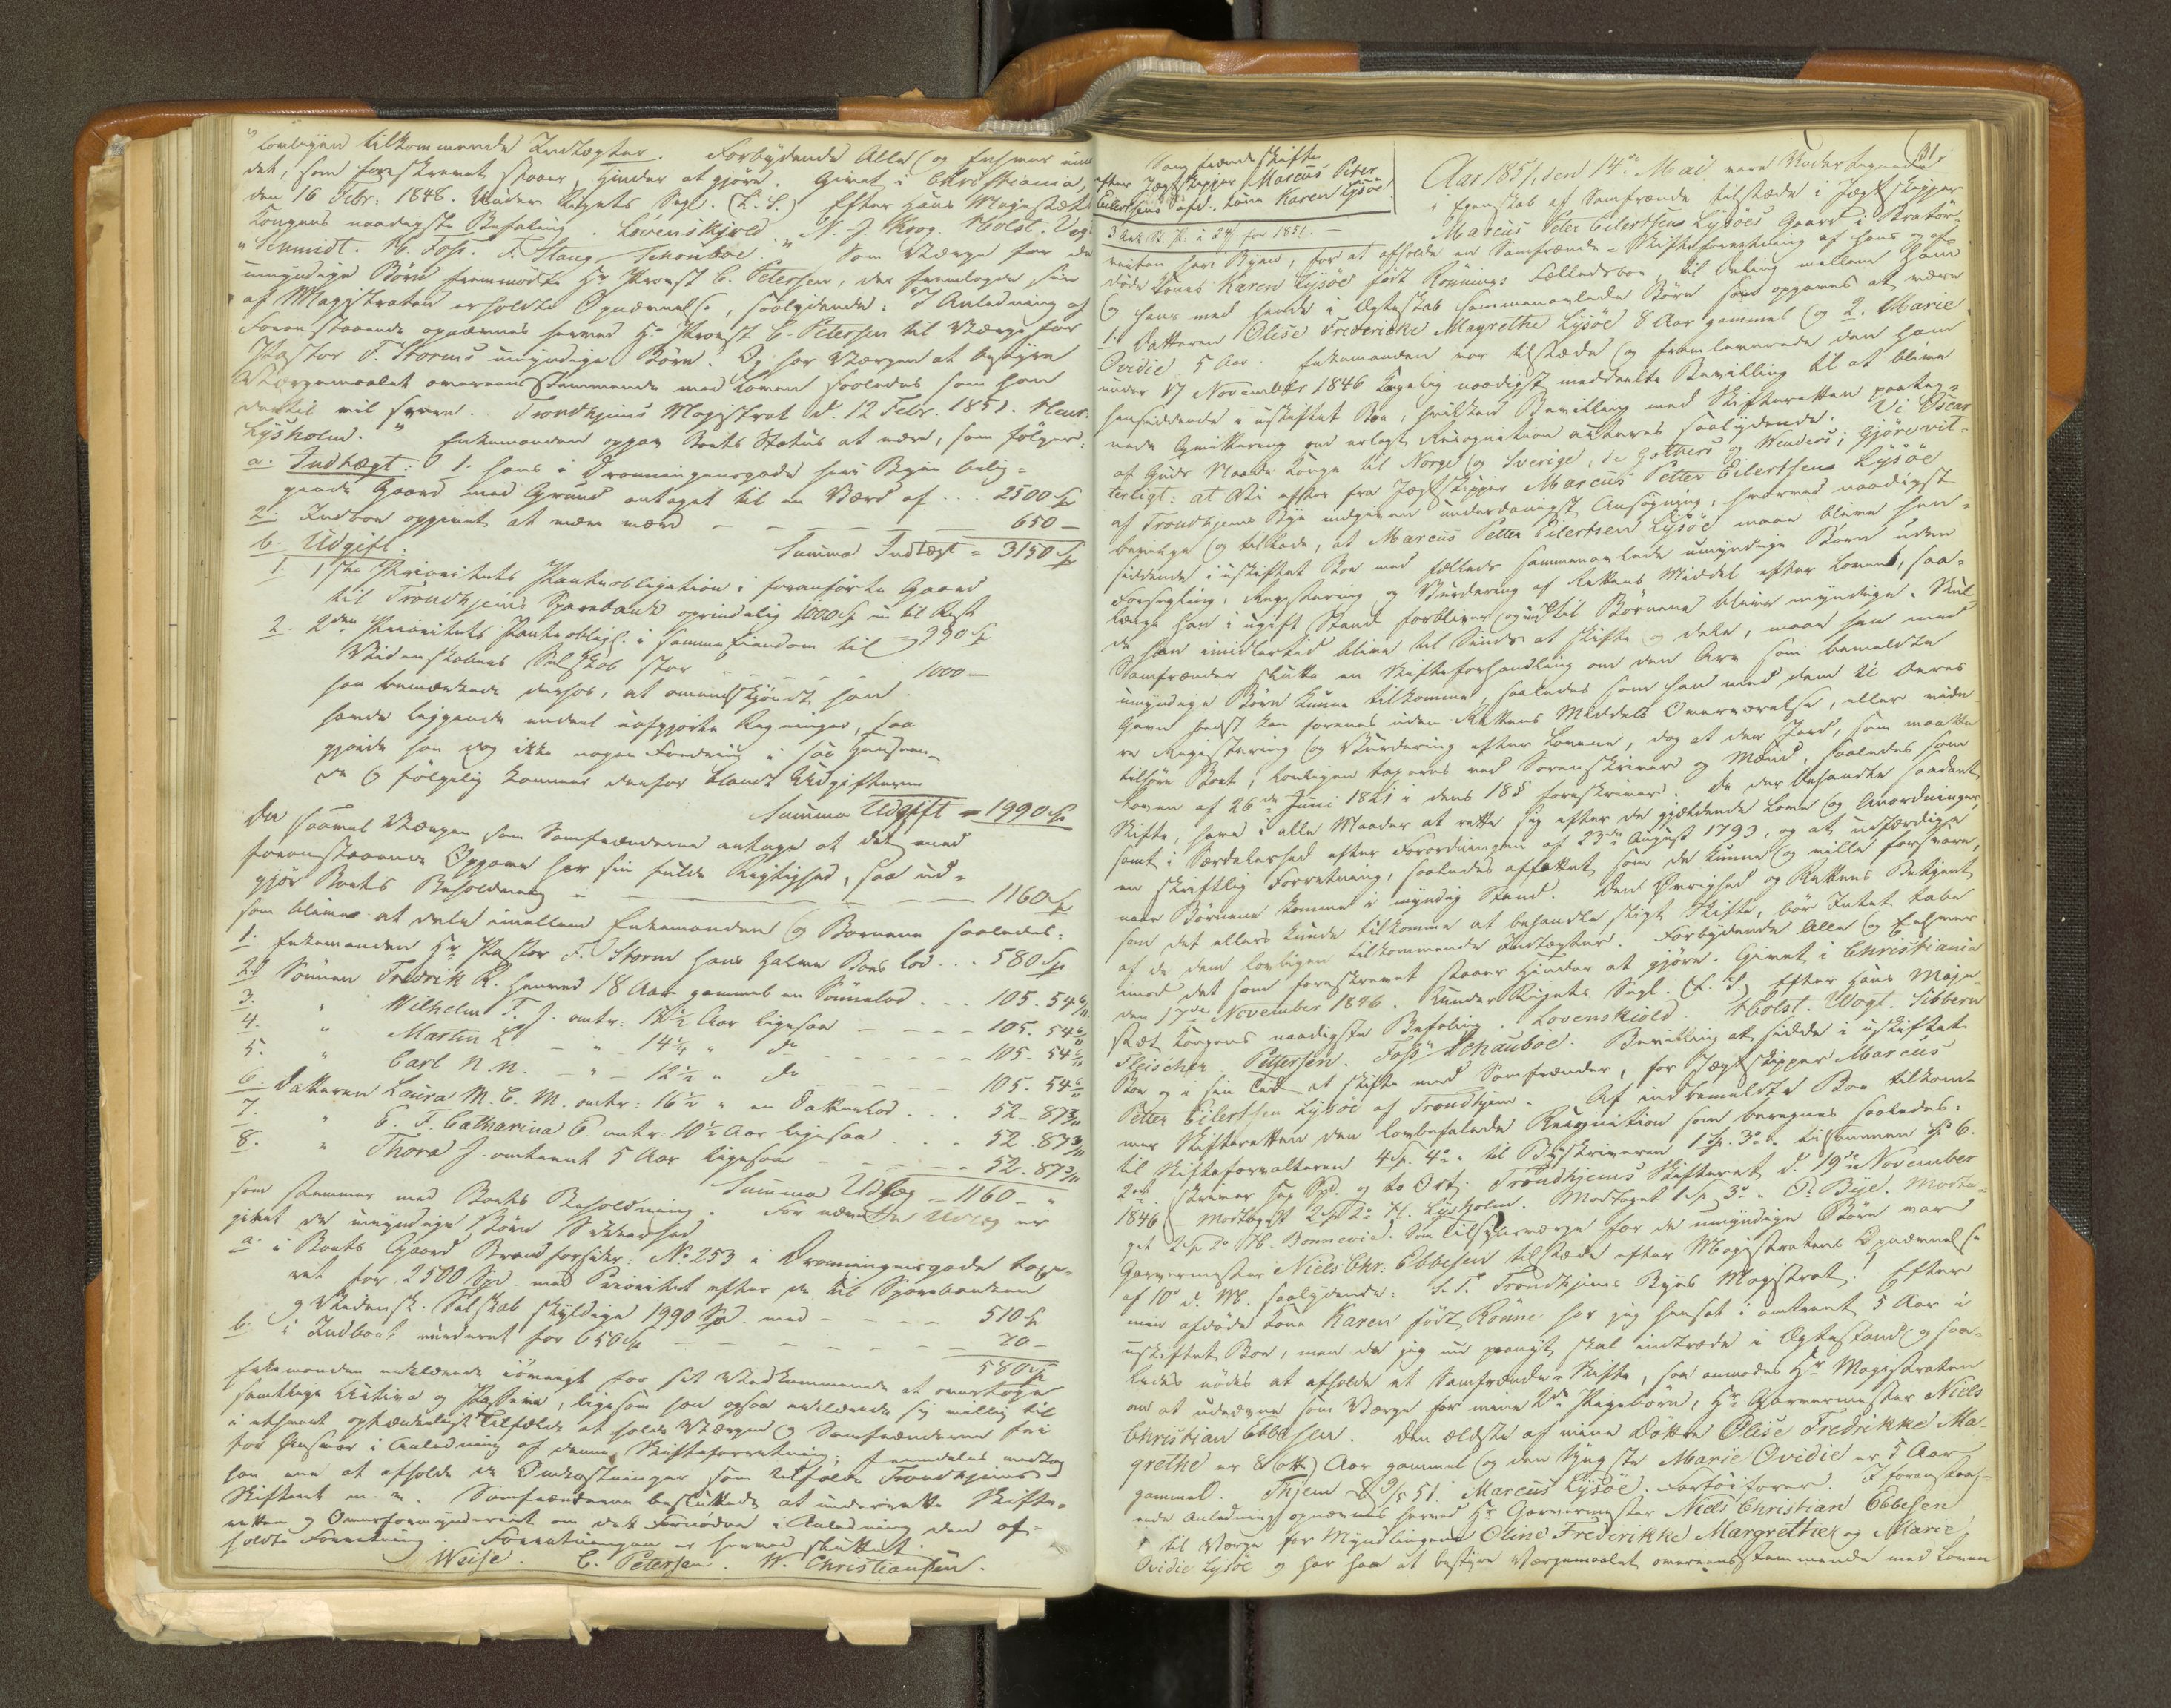 lovligen tilkommende Indtægter. Forbydende Alle og Enhver imod
det, som foreskrevet staaer, Hinder at gjöre. Givet i Christiania,
den 16 Febr: 1848. Under Rigets Segl. (L. S.) Efter Hans Majestæts
Kongens naadigste Befaling. Lövenskjold N. J. Krog. Holst. Vogt
"Schmidt. H. Foss. F. Stang. Schouboe." Som Værge for de
umyndige Börn fremmödte Hr Provst C. Petersen, der fremlagde sin
af Magistraten erholdte Opnævnelse, saalydende: "I Anledning af
Foranstaaende opnævnes herved Hr Provst C. Petersen til Værge for
Pastor F. Storms umyndige Börn. Og har Værgen at bestyre
Værgemaalet overeensstemmende med Loven saaledes som han
dertil vil svare. Trondhjems Magistrat d. 12 Febr. 1851. Henr.
Lysholm." Enkemanden opgav Boets Status at være, som fölger:
a. Indtægt: 1. hans i Dronningensgade her i Byen belig-
gende Gaard med Grund antaget til en Værd af ... 2500 Sp
2. Indboe opgivet at være værd — — — — — 650 —
Summa Indtægt = 3150 Sp
b. Udgift:
1. 1ste Prioritets Panteobligation i foranförte Gaard
til Trondhjems Sparebank oprindelig 1000 Sp nu til Rest
990 Sp
2. 2den Prioritets Panteoblig: i samme Eiendom til
Videnskabers Selskab stor — — — — 1000 —
han bemærkede derhos, at omendskjöndt han
havde liggende endeel uafgjorte Regninger, saa
gjorde han dog ikke nogen Fordring i saa Henseen-
de og fölgelig kommer derfor blandt Udgifterne
Summa Udgift = 1990 Sp
Da saavel Værgen som Samfrænderne antage at det med
foranstaaende Opgave har sin fulde Rigtighed, saa ud-
gjör Boets Beholdning — — — — — 1160 Sp
som bliver at dele imellem Enkemanden og Börnene saaledes:
1. Enkemanden Hr Pastor F. Storm hans halve Boes Lod ... 580 Sp
2. Sönnen Fredrik R. henved 18 Aar gammel en Sönnelod ... 105. 54 6/11
3. " Wilhelm F. J. omtr: 17½ Aar ligesaa — — — 105. 54 6/11
4. " Martin L. — " — 14¼ " do — — — 105. 54 6/11
5. " Carl N. N. — " — 12½ " do — — — 105. 54 6/11
6. Datteren Laura M. C. M. omtr: 16½ " en Datterlod ... 52. 87 3/11
7. " E. F. Catharina P. omtr: 10½ Aar ligesaa ... 52. 87 3/11
8. " Thora J. omtrent 5 Aar ligesaa — — — 52. 87 3/11
Summa Udlæg = 1160 — "
som stemmer med Boets Beholdning. For nævnte Udlæg er
givet de umyndige Börn Sikkerhed
a. i Boets Gaard Brandforsikr: No 253 i Dronningensgade taxe-
ret for 2500 Spd med Prioritet efter de til Sparebanken
og Vidensk: Selskab skyldige 1990 Spd med — — — 510 Sp
b. i Indboet vurderet for 650 Sp — — — — — 70 —
580 Sp
Enkemanden erklærede iövrigt for sit Vedkommende at overtage
samtlige Activa og Passiva, ligesom han ogsaa erklærede sig villig til
i ethvert optænkeligt Tilfælde at holde Værgen og Samfrænderne fri
for Ansvar i Anledning af denne Skifteforretning; fremdeles vedtog
han at afholde de Omkostninger som tilfalde Trondhjems
Skifteret m. m. Samfrænderne besluttede at underrette Skifte-
retten og Overformynderiet om det Fornödne i Anledning den af-
holdte Forretning. Forretningen er herved sluttet.
Weise. C. Petersen. W. Christiansen.
31.
Samfrændeskifte
efter Jægtskipper Marcus Peter
Eilertsens afd. Kone Karen Lysöe
3 Ark St. P. à 24 s. for 1851. —
Aar 1851, den 14de Mai vare Undertegnede
i Egenskab af Samfrænder tilstæde i Jægtskipper
Marcus Peter Eilertsens Lysöes Gaard i Bratör-
veiten her i Byen, for at afholde en Samfrænde-Skifteforretning af hans og af-
döde Kones Karen Lysöe födt Rönnings Fælledsboe, til Deling mellem ham
og hans med hende i Ægteskab sammenavlede Börn som opgaves at være
1. Datteren Olise Fredericke Magrethe Lysöe 8 Aar gammel og 2. Marie
Ovidie 5 Aar. Enkemanden var tilstæde og fremleverede den ham
under 17 November 1846 Kongelig naadigst meddeelte Bevilling til at blive
hensiddende i uskiftet Boe, hvilken Bevilling med Skifteretten paateg-
nede Qvittering om erlagt Recognition acteres saalydende: "Vi Oscar
af Guds Naade Konge til Norge og Sverige, de Gothers og Wenders; Gjöre vit-
terligt: at Vi efter fra Jægtskipper Marcus Petter Eilertsen Lysöe
af Trondhjems Bye indgiven underdanigst Ansögning, herved naadigst
bevilge og tillade, at Marcus Petter Eilertsen Lysöe maae blive hen-
siddende i uskiftet Boe med fælleds sammenavlede umyndige Börn uden
Forsegling, Registering og Vurdering af Rettens Middel efter Loven, saa-
længe han i ugift Stand forbliver og indtil Börnene blive myndige. Skul-
de han imidlertid blive til Sinds at skifte og dele, maae han med
Samfrænder slutte en Skifteforhandling om den Arv som bemeldte
umyndige Börn kunne tilkomme, saaledes som han med dem til Deres
Gavn bedst kan forenes uden Rettens Middels Overværelse, eller vide-
re Registering og Vurdering efter Lovene, dog at den Jord, som maatte
tilhöre Boet, lovligen taxeres ved Sorenskriver og Mænd, saaledes som
Loven af 26de Juni 1821 i dens 18 § foreskriver. De der behandle saadant
Skifte, have i alle Maader at rette sig efter de gjældende Love og Anordninger,
samt i Særdeleshed efter Forordningen af 23de August 1793, og at udfærdige
en skriftlig Forretning, saaledes affattet som de kunne og ville forsvare,
naar Börnene komme i myndig Stand. Den Övrighed og Rettens Betjent
som det ellers kunde tilkomme at behandle sligt Skifte, bör Intet tabe
af de dem lovligen tilkommende Indtægter. Forbydende Alle og Enhver
imod det som foreskrevet staaer Hinder at gjöre. Givet i Christiania
den 17de November 1846. Under Rigets Segl. (L. S.) Efter Hans Maje-
stæt Kongens naadigste Befaling. Lövenskiold. Holst. Vogt. Sibbern
Fleischer Pettersen. Foss Schauboe. Bevilling at sidde i uskiftet
Boe og i sin Tid at skifte med Samfrænder, for Jægtskipper Marcus
Petter Eilertsen Lysöe af Trondhjem. Af indbemeldte Boe tilkom-
mer Skifteretten den lovbefalede Recognition som beregnes saaledes:
til Skifteforvalteren 4 Sp. 4 " til Byskriveren 1 Sp. 3 " tilsammen Sp 6.
2 ort. skriver sex Spd. og to Ort. Trondhjems Skifteret d. 19de November
1846. Modtaget 2 Sp 2 " H. Lysholm. Modtaget 1 Sp 3 " O. Bye. Modta-
get 2 Sp 2 " H. Bonnevie. Som Tilsynsværge for de umyndige Börn var
Garvermester Niels Chr: Ebbesen tilstæde efter Magistratens Opnævnelse
af 10de d. M. saalydende: S. T. Trondhjems Byes Magistrat! Efter
min afdöde Kone Karen födt Rönne har jeg hensat i omtrent 5 Aar i
uskiftet Boe, men da jeg nu paanyt skal indtræde i Ægtestand og saa-
ledes nödes at afholde et Samfrænde-Skifte, saa anmodes Hr Magistraten
om at udnævne som Værge for mine 2de Pigebörn, Hr Garvermester Niels
Christian Ebbesen. Den ældste af mine Döttre Olise Fredrikke Ma-
grethe er 8 (otte) Aar gammel og den Yngste Marie Ovidie er 5 Aar
gammel. Thjem d 9/5 51. Marcus Lysöe. Fartöiförer. I foranstaa-
ende Anledning opnævnes herved Hr Garvermester Niels Christian Ebbesen
til Værge for Myndlingerne Oline Frederikke Margrethe og Marie
Ovidie Lysöe og har han at bestyre Værgemaalet overeensstemmende med Loven